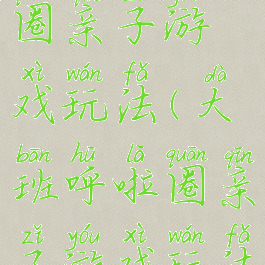 圈亲子游
xì wán fǎ dà
戏玩法(大
bān hū lā quān qīn
班呼啦圈亲
zǐ yóu xì wán fǎ
子游戏玩法